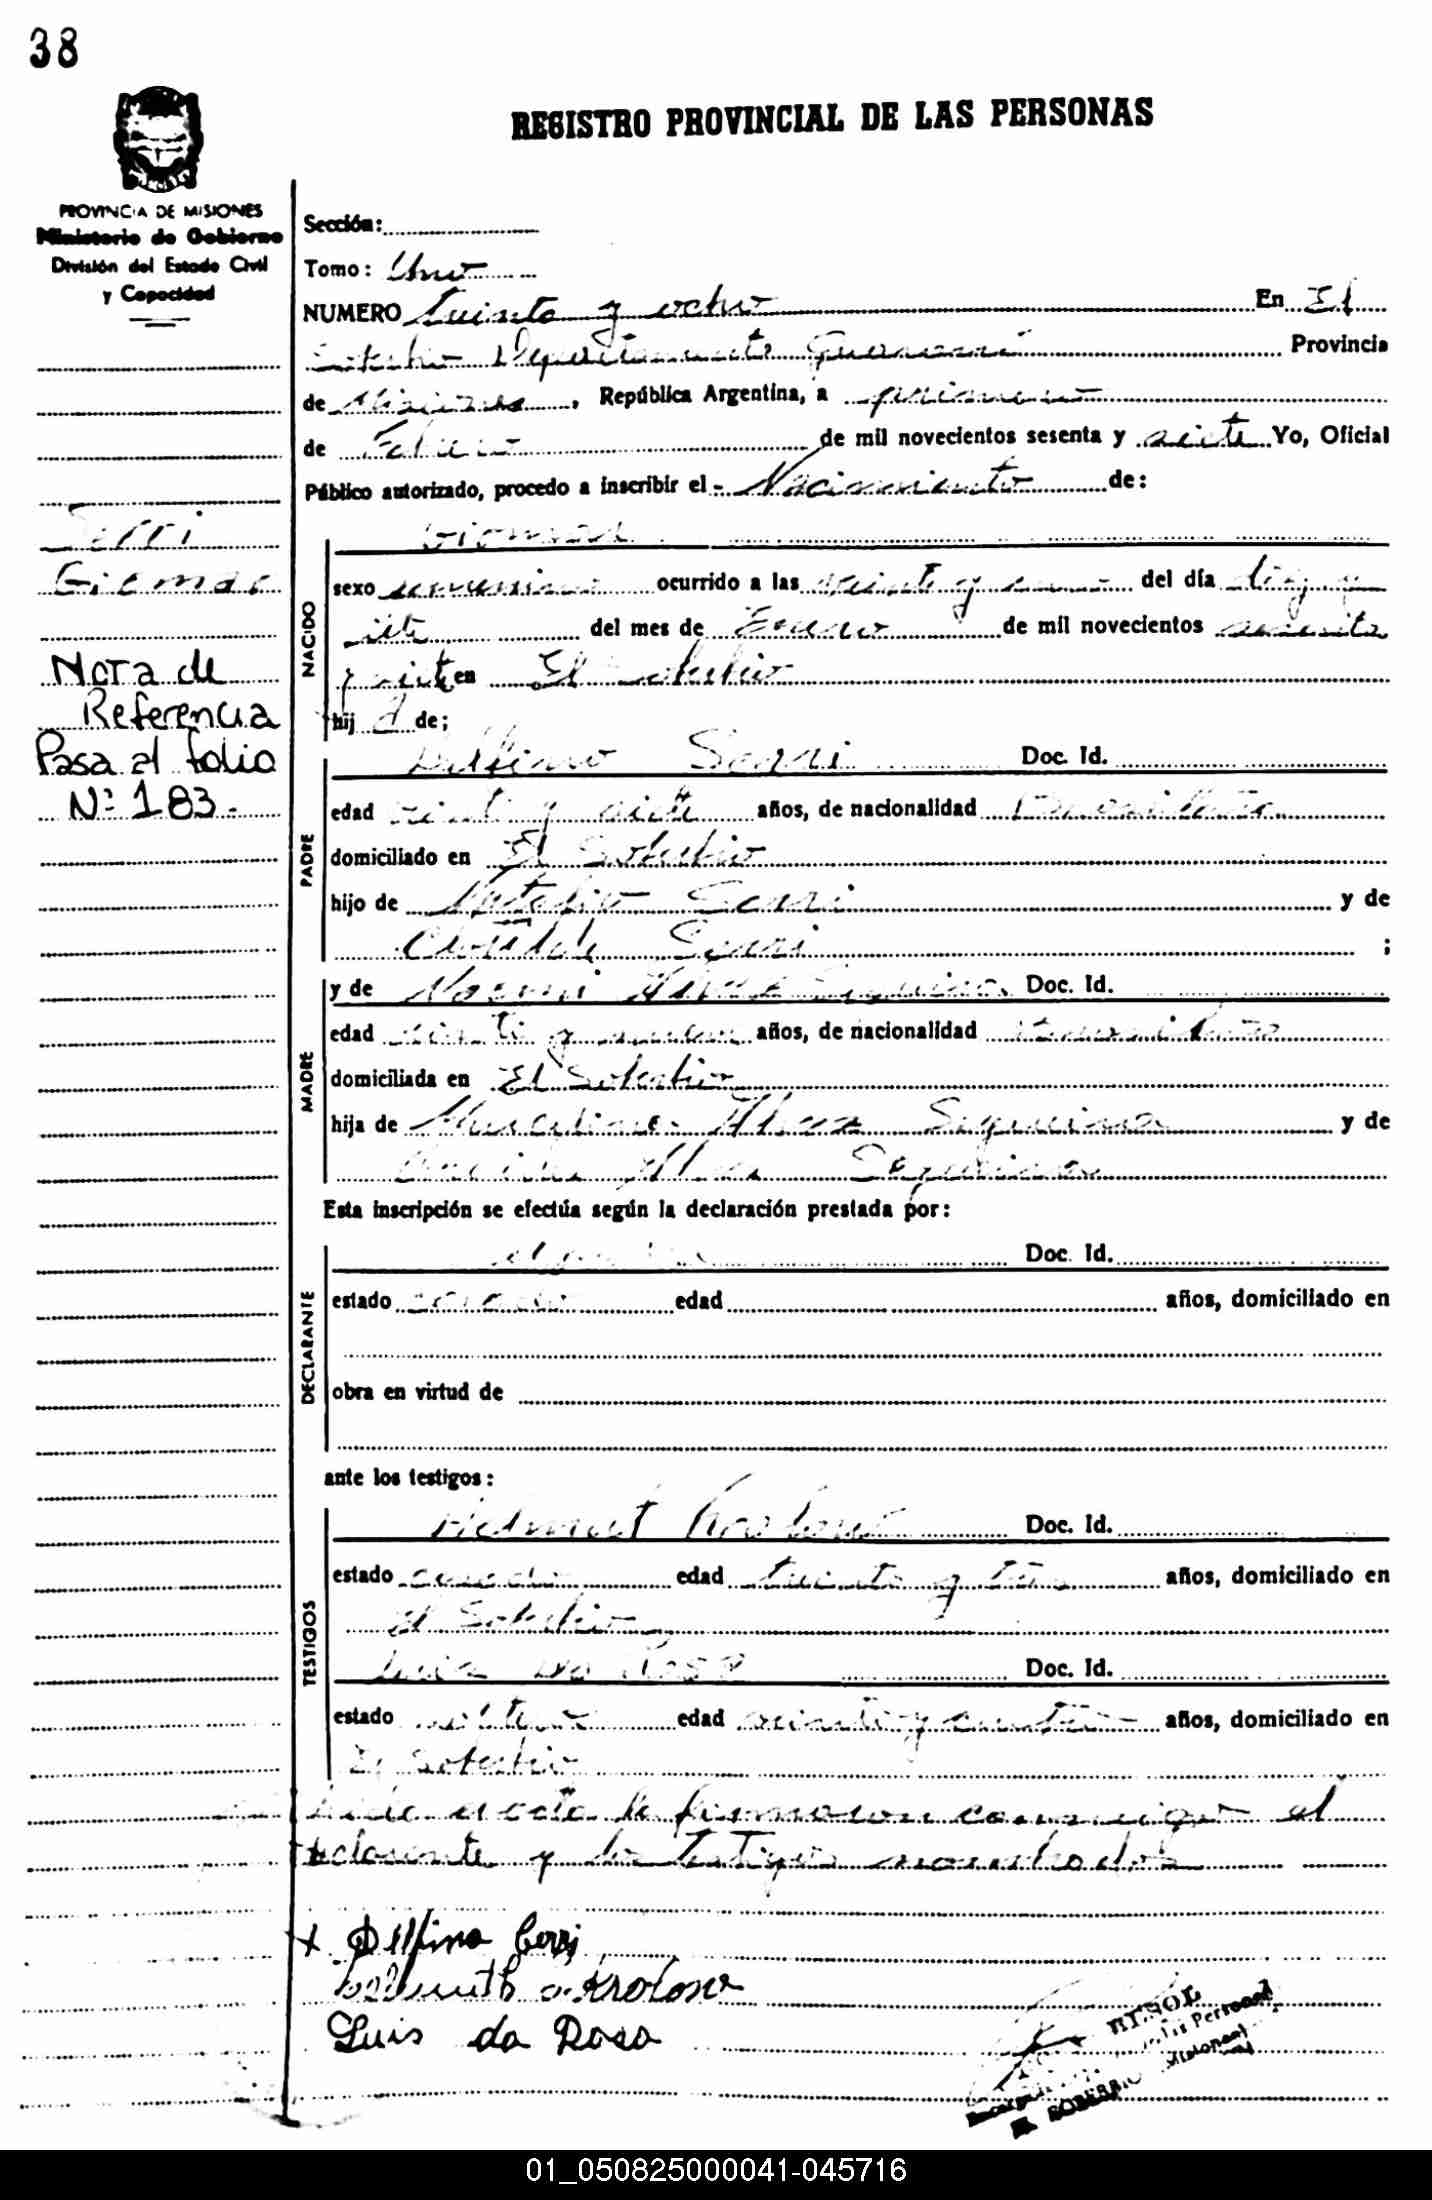 38
REGISTRO PROVINCIAL DE LAS PERSONAS
PROVINCIA DE MISIONES
Ministerio de Gobierno
División del Estado Civil
y Capacidad
Sección:
Tomo: Uno
NUMERO treinta y ocho En El
Soberbio Departamento Guaraní Provincia
de Misiones, República Argentina, a primero
de Febrero de mil novecientos sesenta y siete Yo, Oficial
Público autorizado, procedo a inscribir el - Nacimiento de:
Serri
Giomar
Nota de
Referencia
Pasa al folio
Nº 183.-
NACIDO
Giomar
sexo femenino ocurrido a las veinte y una del día diez y
siete del mes de Enero de mil novecientos sesenta
y siete en El Soberbio
hij a de;
PADRE
Delfino Serri Doc. Id.
edad veinte y siete años, de nacionalidad Brasileña
domiciliado en El Soberbio
hijo de Serri y de
Clotilde Serri ;
MADRE
y de Noemi Alves Siqueira Doc. Id.
edad veinte y años, de nacionalidad brasileña
domiciliada en El Soberbio
hija de Alves Siqueira y de
Alves Siqueira
Esta inscripción se efectúa según la declaración prestada por:
DECLARANTE
el padre Doc. Id.
estado casado edad años, domiciliado en
obra en virtud de
ante los testigos:
TESTIGOS
Helmut Doc. Id.
estado casado edad treinta y tres años, domiciliado en
El Soberbio
Luis Da Rosa Doc. Id.
estado soltero edad veinte y cuatro años, domiciliado en
El Soberbio
Leída el acta la firmaron conmigo el
declarante y los testigos nombrados
x Delfino Cerri
Luis da Rosa
EL SOBERBIO (Misiones)
01_050825000041-045716